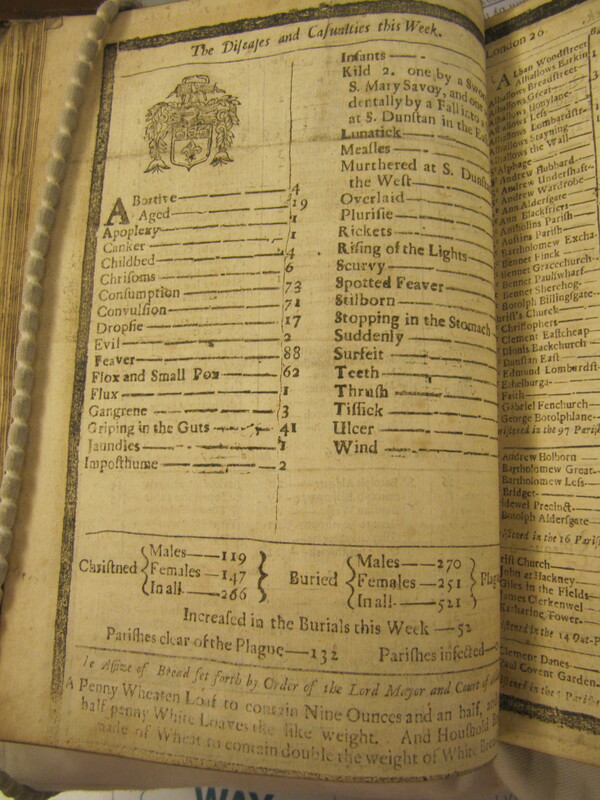 The Diseases and Casualties this Week.
ABortive — 4
Aged — 19
Apoplexy — 1
Canker — 1
Childbed — 4
Chrisoms — 6
Consumption — 73
Convulsion — 71
Dropsie — 17
Evil — 2
Feaver — 88
Flox and Small Pox — 62
Flux — 1
Gangrene — 3
Griping in the Guts — 41
Jaundies — 1
Imposthume — 2
Infants
Kild 2. one by a
S. Mary Savoy, and one
dentally by a Fall into
at S. Dunstan in the
Lunatick
Measles
Murthered at S.
the West
Overlaid
Plurisie
Rickets
Rising of the Lights
Scurvy
Spotted Feaver
Stilborn
Stopping in the Stomach
Suddenly
Surfeit
Teeth
Thrush
Tissick
Ulcer
Wind
Christned { Males — 119 Females — 147 In all — 266 }
Buried { Males — 270 Females — 251 In all — 521 }
Increased in the Burials this Week — 52
Parishes clear of the Plague — 132 Parishes infected
Assize of Bread set forth by Order of the Lord Mayor and Court of
A Penny Wheaten Loaf to contain Nine Ounces and an half, and
half-penny White Loaves the like weight. And Houshold
made of Wheat to contain double the weight of White
London 26
Alban Woodstreet
Alhallows Barkin
Alhallows Breadstreet
Alhallows Great
Alhallows Honylane
Alhallows Less
Alhallows Lombardst
Alhallows Stayning
Alhallows the Wall
Alphage
Andrew Hubbard
Andrew Undershaft
Andrew Wardrobe
Ann Aldersgate
Ann Blackfriers
Antholins Parish
Austins Parish
Bartholomew Excha
Bennet Finck
Bennet Gracechurch
Bennet Paulswharf
Bennet Sherehog
Botolph Billingsgate
Church
Christophers
Clement Eastcheap
Dionis Backchurch
Dunstan East
Edmund Lombardst
Ethelburga
Faith
Gabriel Fenchurch
George Botolphlane
in the 97 Parish
Andrew Holborn
Bartholomew Great
Bartholomew Less
Bridget
Bridewel Precinct
Botolph Aldersgate
in the 16 Parish
Church
John at Hackney
Giles in the Fields
James Clerkenwel
Katharine Tower
in the 14 Out-P
Clement Danes
Paul Covent Garden
WAY